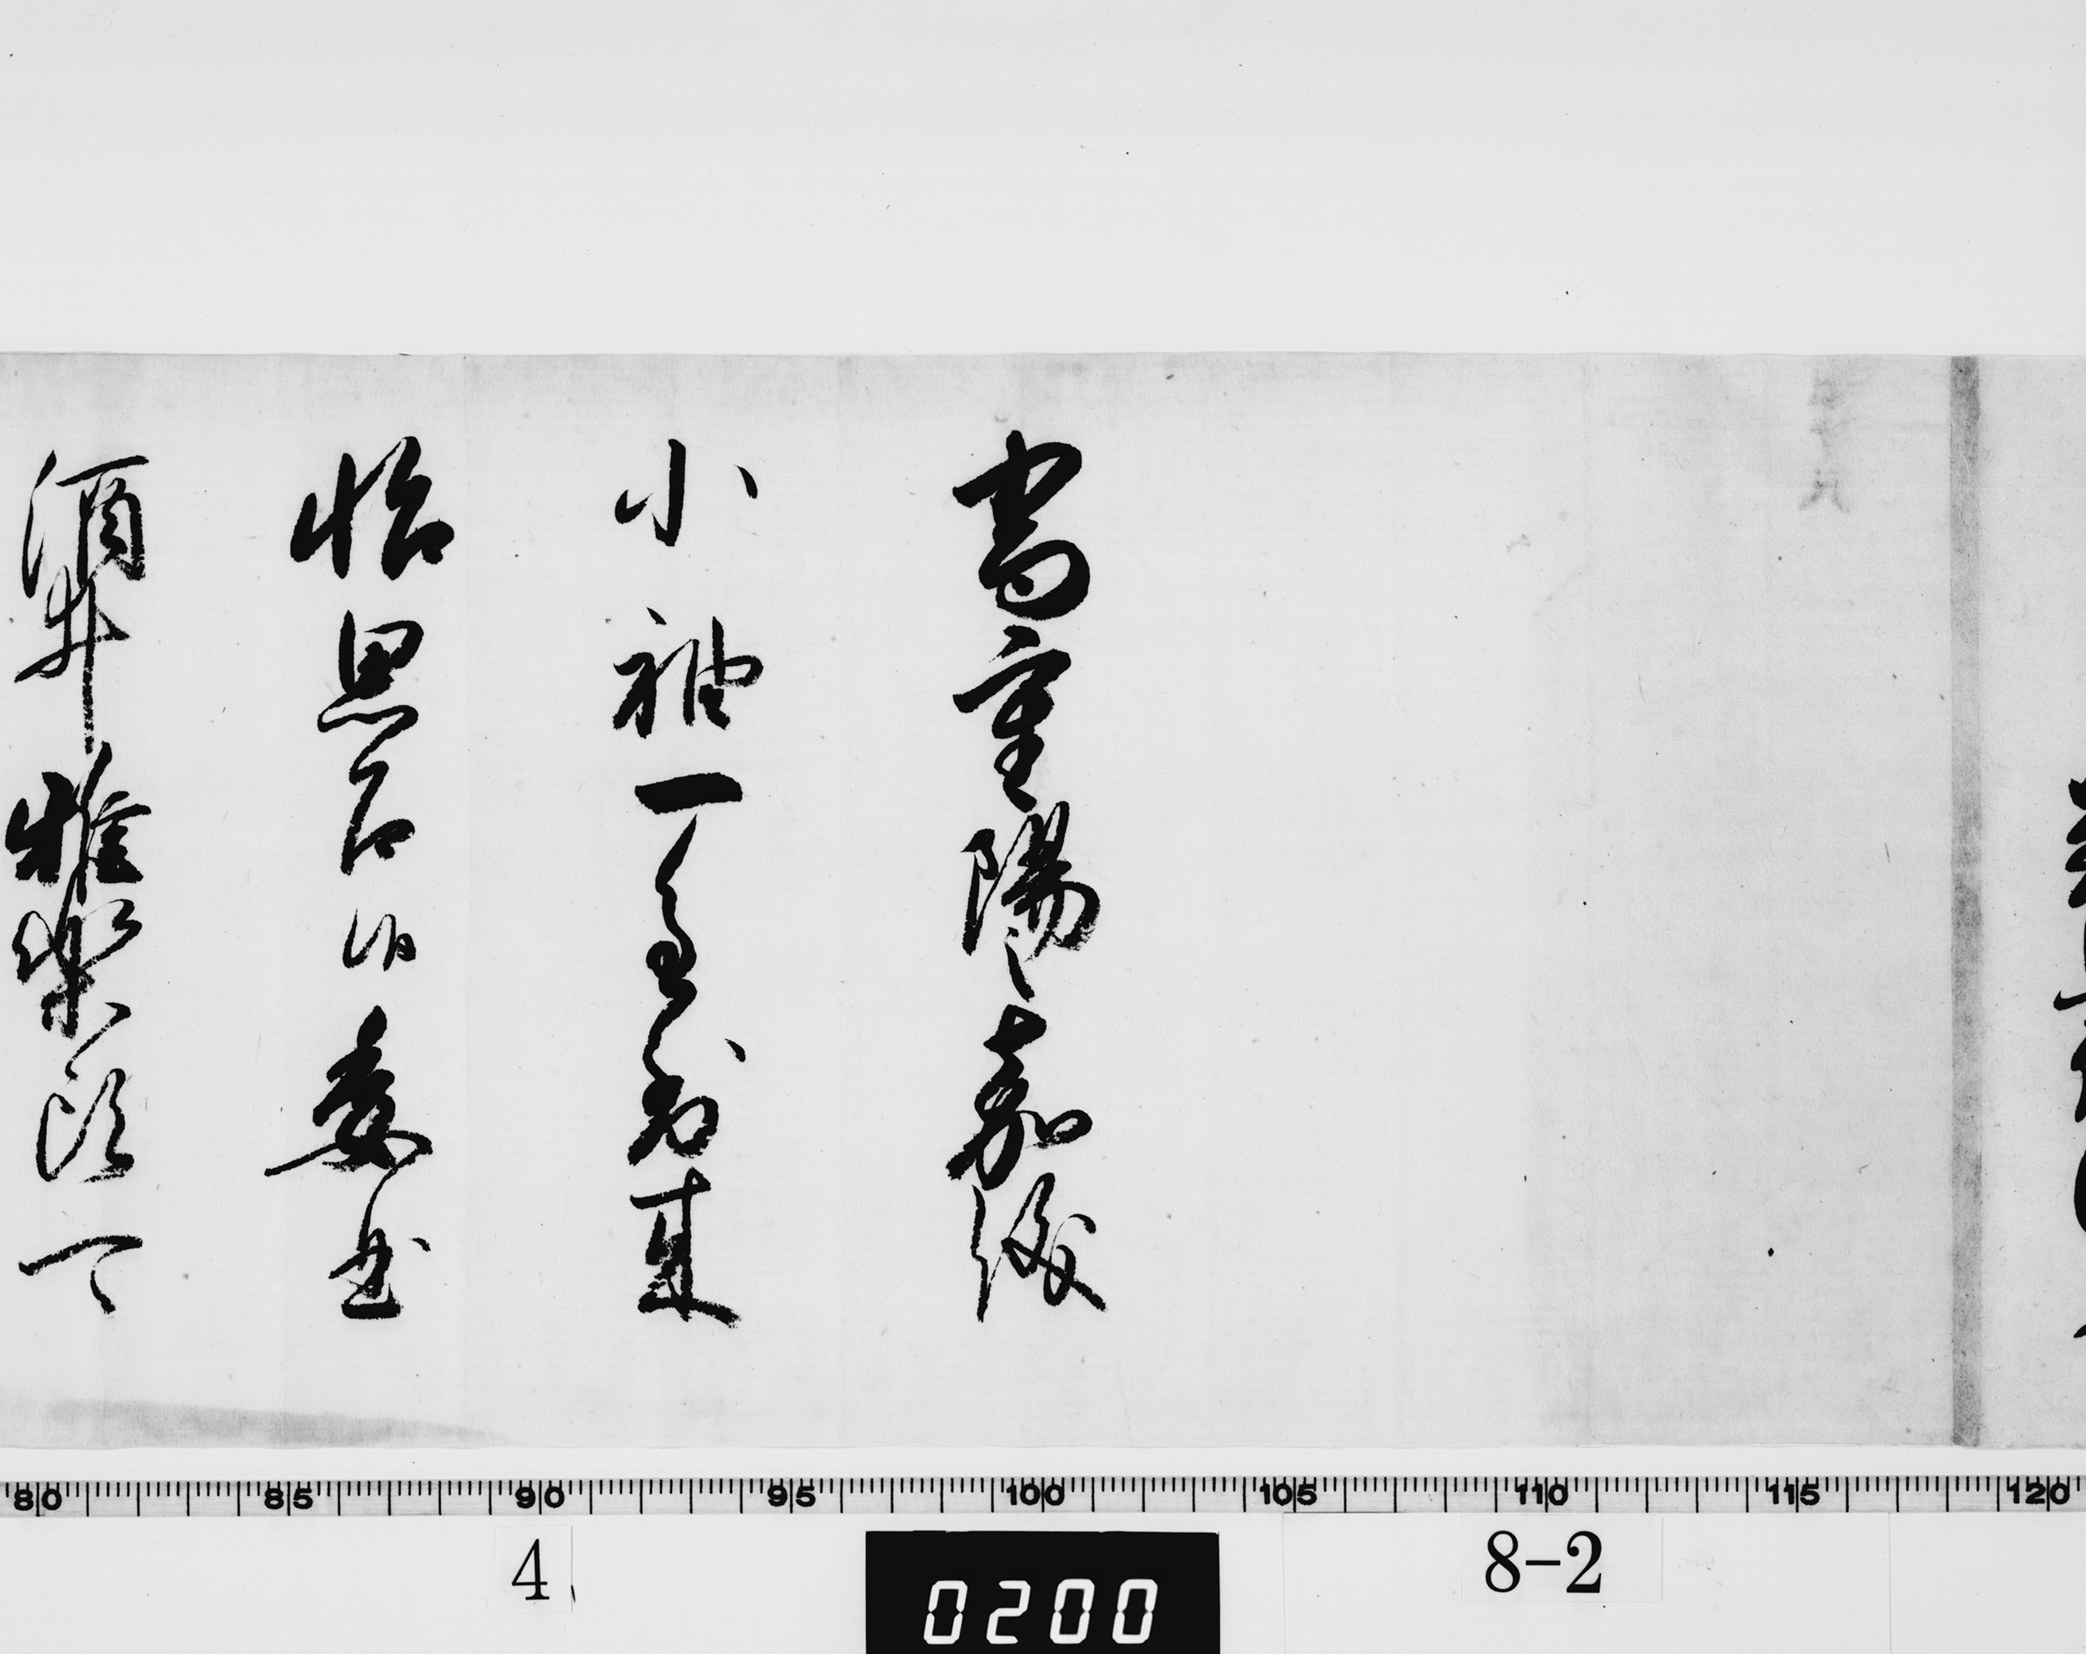 為重陽之嘉儀
小袖一重到来
怡思召候委曲
酒井雅楽頭可
80 85 90 95 100 105 110 115 120
4
0200
8-2